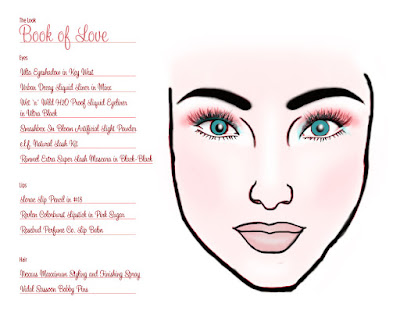 The Look
Book of Love
Eyes
Ulta Eyeshadow in Key West
Urban Decay Liquid Liner in Maze
Wet 'n' Wild H2O Proof Liquid Eyeliner
in Ultra Black
Smashbox In Bloom Artificial Light Powder
e.l.f. Natural Lash Kit
Rimmel Extra Super Lash Mascara in Black-Black
Lips
Lorac Lip Pencil in #18
Revlon Colorburst Lipstick in Pink Sugar
Rosebud Perfume Co. Lip Balm
Hair
Nexxus Maxximum Styling and Finishing Spray
Vidal Sassoon Bobby Pins